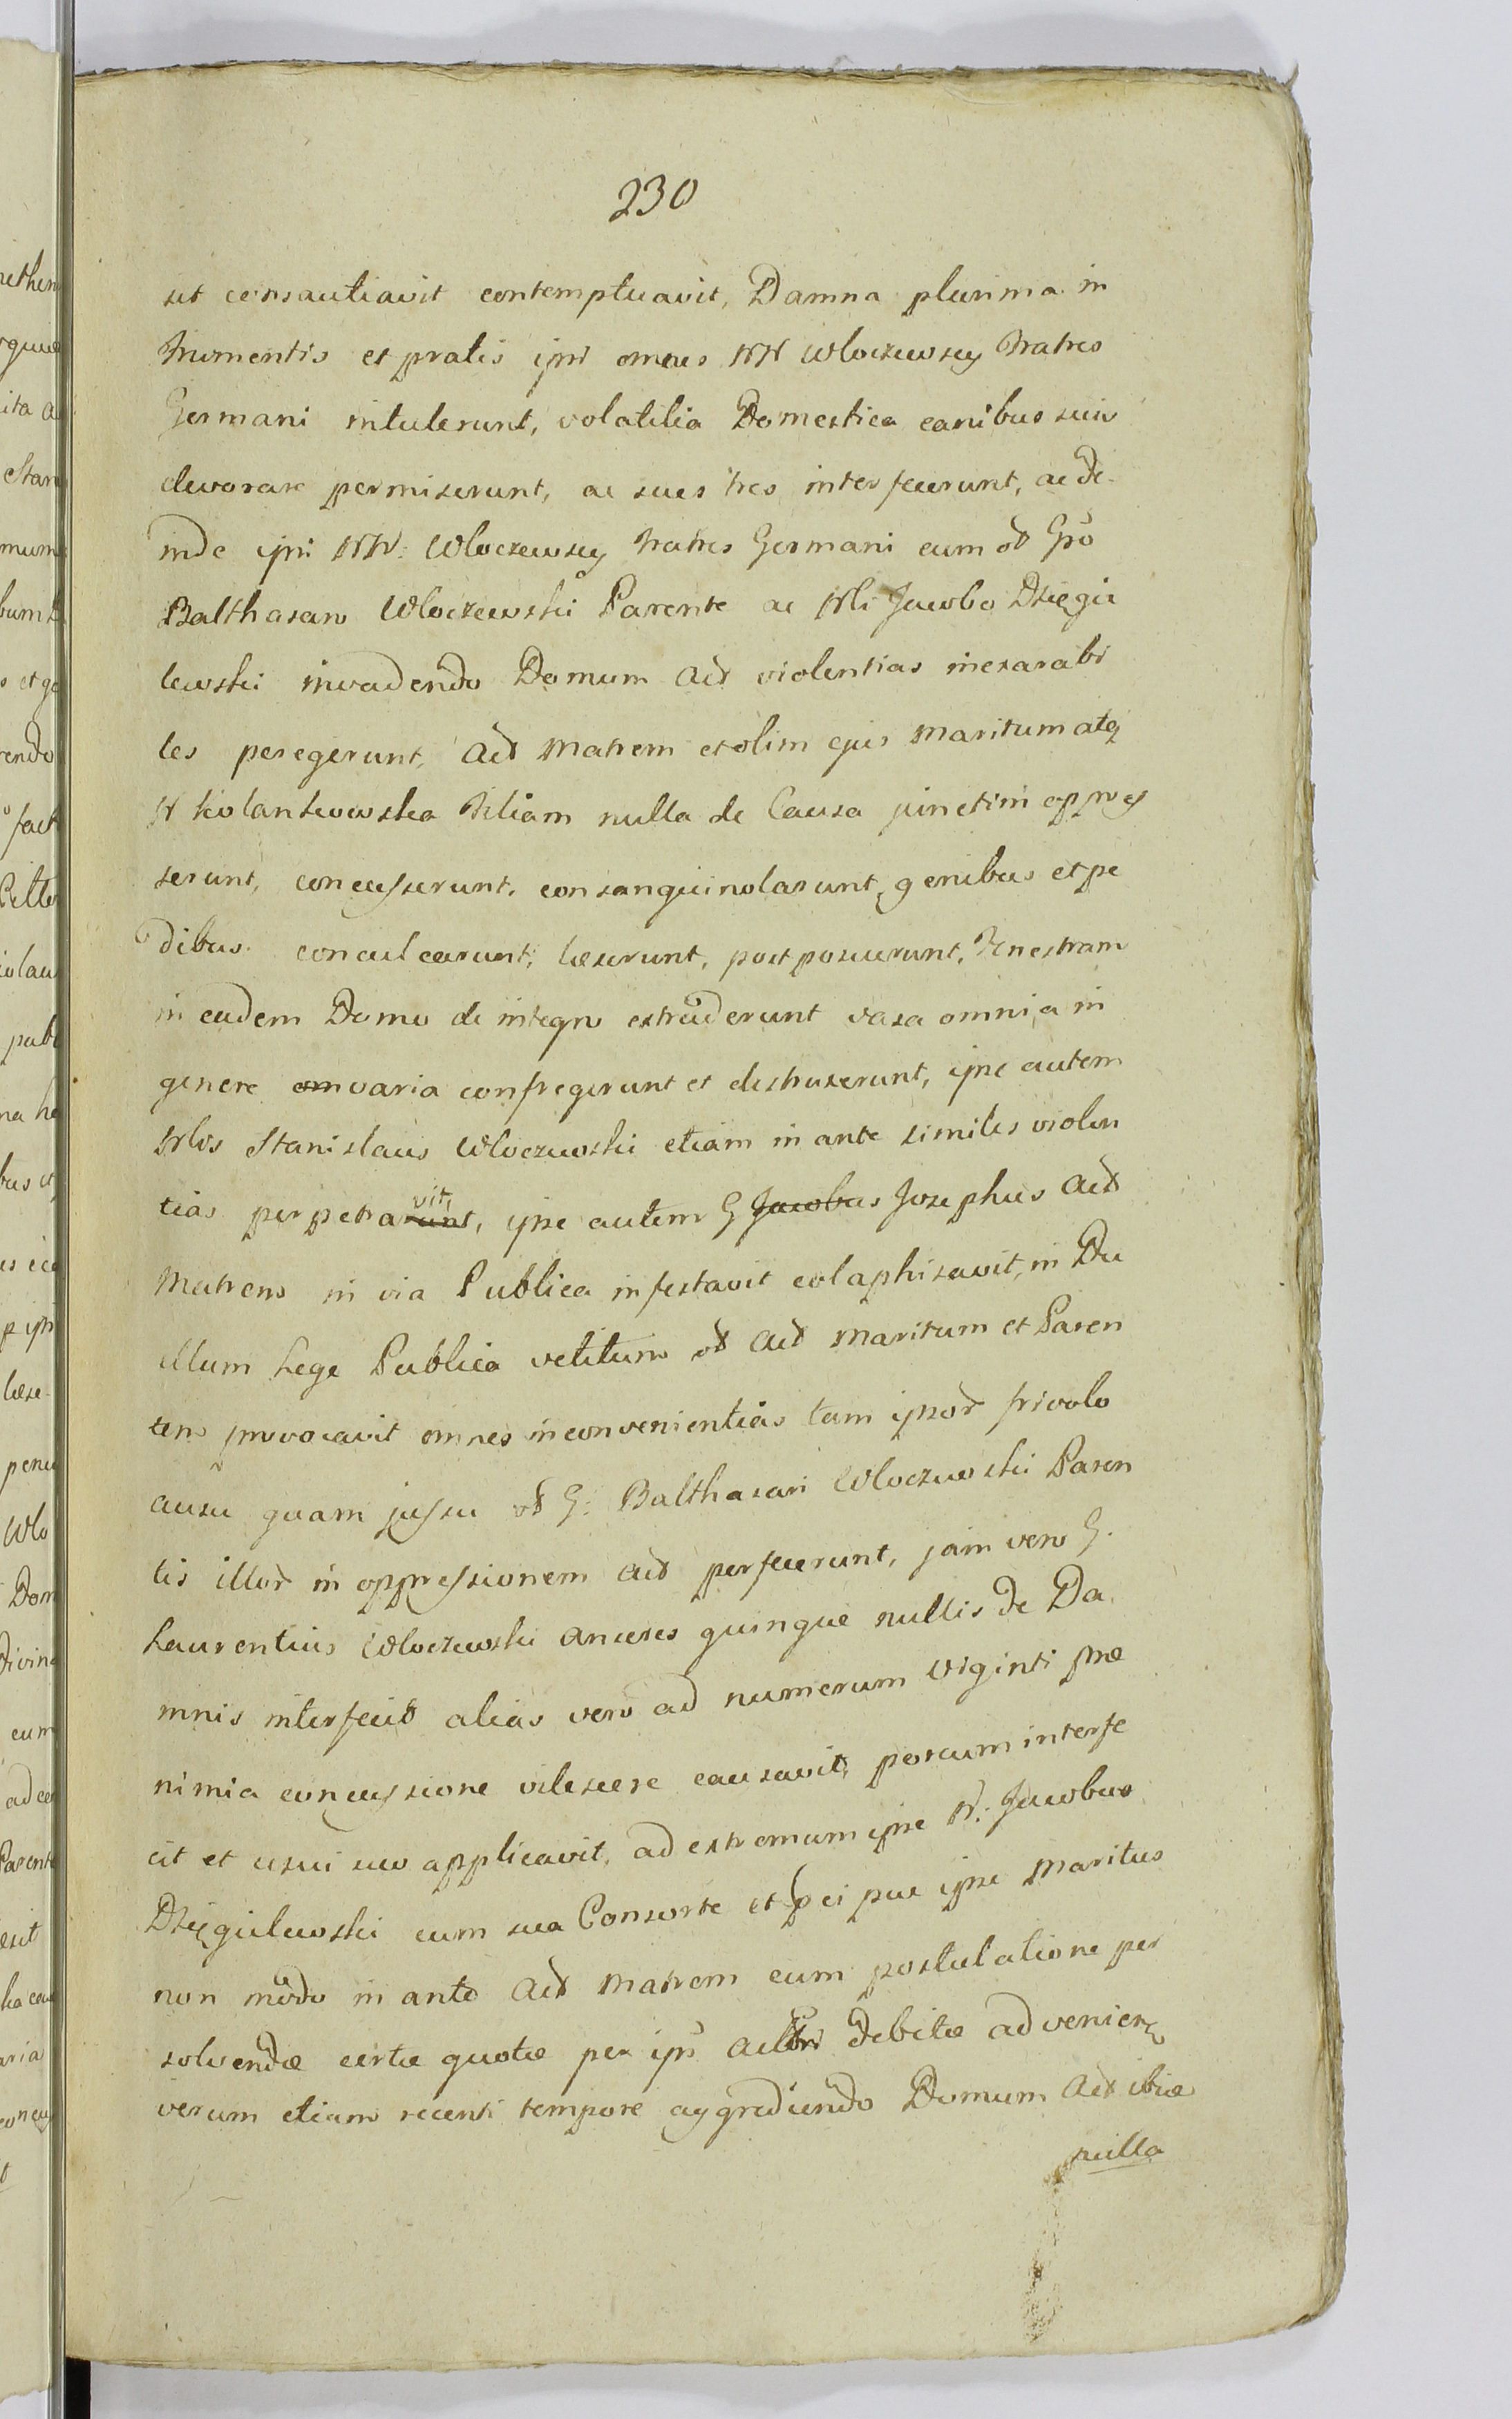 230
sit consautiavit contemptuavit, Damna plurima in
frumentis et pratis ipsi omnes NN Włoczewscy fratres
Germani intulerunt, volatilia Domestica canibus suis
devorare permiserunt, ac sues tres interfecerunt, ac de-
inde ipsi NN: Włoczewscy fratres Germani cum Gso
Balthasaro Włoczewski Parente ac Nli Jacobo Dzięgie
lewski invadendo Domum Act violentias inexarabi
les peregerunt, Act Matrem et olim ejus Maritum atq
N Kolankowska filiam nulla de Causa junctim oppres
serunt, concusserunt, consanguinolarunt, genibus et pe
dibus conculcarunt, læserunt, postposuerunt, Fenestram
in eadem Domo de integro extruderunt vasa omnia in
genere varia confregerunt et destruxerunt, ipse autem
Nlis Stanislaus Włoczewski etiam in ante similes violen
tias perpetravit, ipse autem G Jacobus Josephus Act
Matrem in via Publica infestavit colaphisavit, in Du
ellum Lege Publica vetitum Act Maritum et Paren
tem provocavit omnes inconvenientias tam ipsor frivolo
ausu quam jussu G: Balthasari Włoczewski Paren
tis illor in oppressionem Act perfecerunt, jam vero G.
Laurentius Włoczewski anseres quinque nullis de Da
mnis interfecit alias vero ad numerum Viginti præ
nimia concussione vilescere causavit, porcum interfe
cit et usui suo applicavit, ad extremum ipse N: Jacobus
Dzięgielewski cum sua Consorte et pcipue ipse Maritus
non modo in ante Act Matrem cum postulatione per
solvendæ certæ quotæ per ips debitæ advenien
verum etiam recenti tempore aggrediendo Domum Act ibiæ
nulla